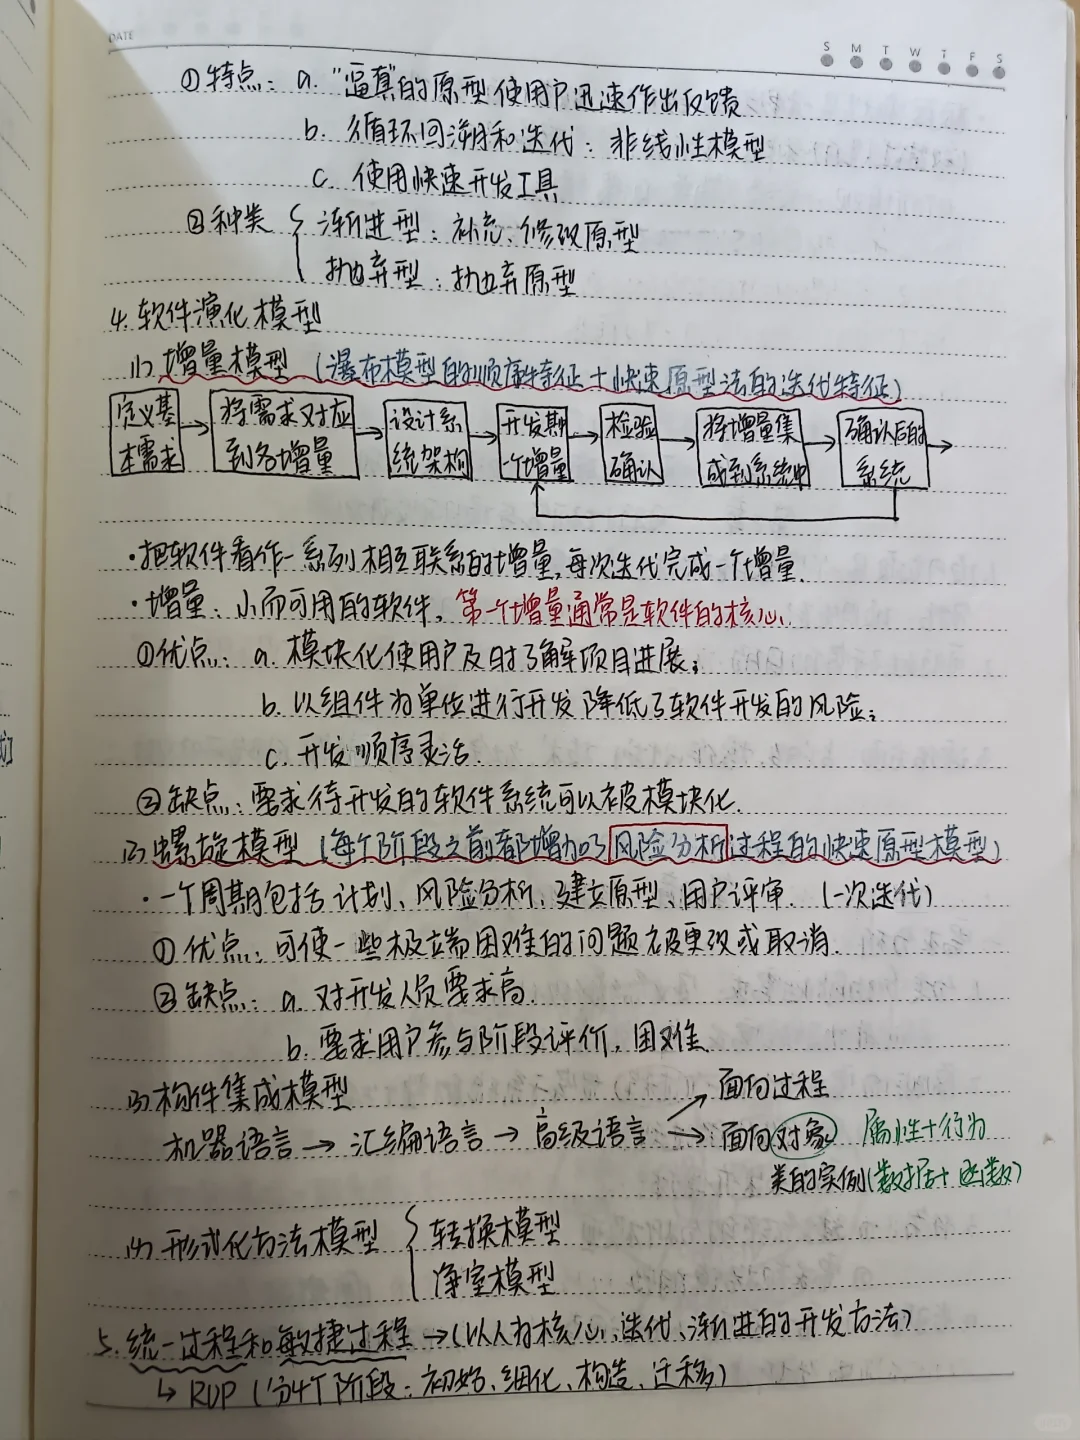 DATE
S M T W T F S
①特点：a. “逼真”的原型使用户迅速作出反馈
b. 循环回溯和迭代：非线性模型
c. 使用快速开发工具
②种类 { 渐进型：补充、修改原型
抛弃型：抛弃原型
4. 软件演化模型
(1) 增量模型（瀑布模型的顺序特征＋快速原型法的迭代特征）
定义基本需求 → 将需求对应到各增量 → 设计系统架构 → 开发期一个增量 → 检验确认 → 将增量集成到系统中 → 确认后的系统 →
·把软件看作一系列相互联系的增量，每次迭代完成一个增量.
·增量：小而可用的软件，第一个增量通常是软件的核心.
①优点：a. 模块化使用户及时了解项目进展；
b. 以组件为单位进行开发降低了软件开发的风险；
c. 开发顺序灵活.
②缺点：要求待开发的软件系统可以被模块化.
(2) 螺旋模型（每个阶段之前都增加了风险分析过程的快速原型模型）
·一个周期包括计划、风险分析、建立原型、用户评审.（一次迭代）
①优点：可使一些极端困难的问题被更改或取消.
②缺点：a. 对开发人员要求高.
b. 要求用户参与阶段评价，困难.
(3) 构件集成模型
面向过程
机器语言 → 汇编语言 → 高级语言 → 面向对象 属性＋行为
类的实例（数据＋函数）
(4) 形式化方法模型 { 转换模型
净室模型
5. 统一过程和敏捷过程 →（以人为核心、迭代、渐进的开发方法）
↳ RUP（分4个阶段：初始、细化、构造、迁移）